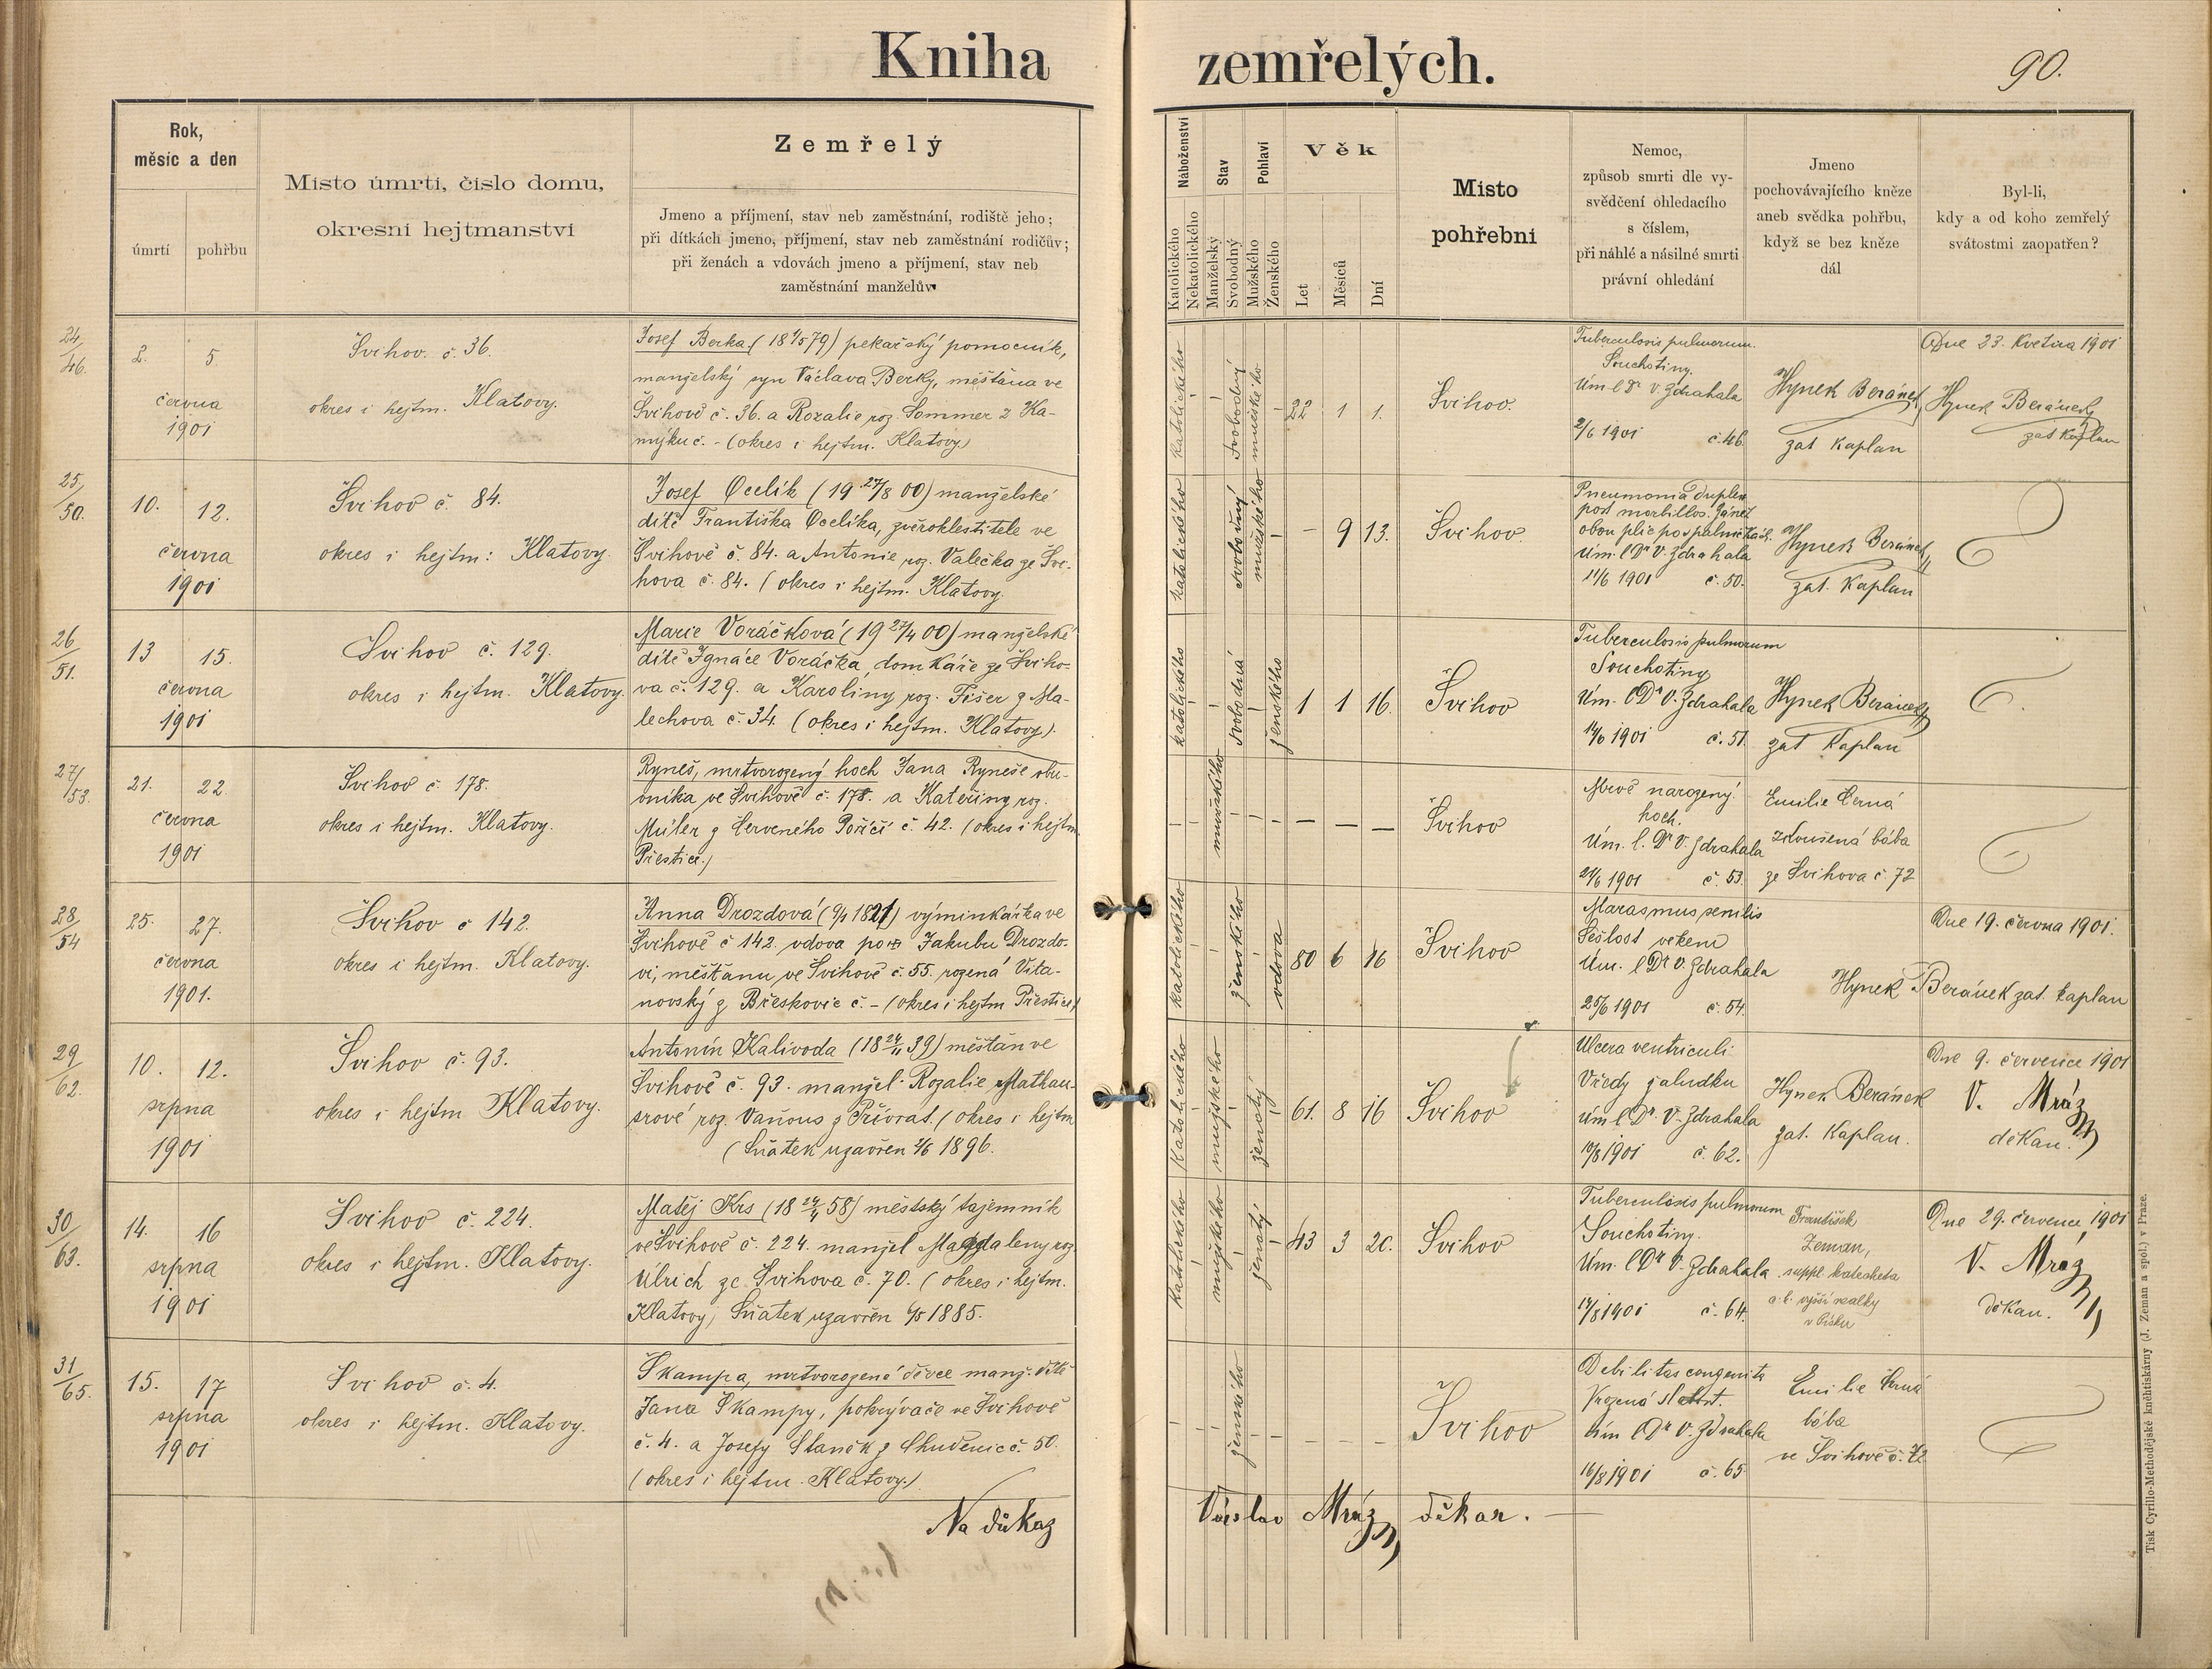 Kniha zemřelých.
90.
Rok,
měsíc a den
úmrtí
pohřbu
Místo úmrtí, číslo domu,
okresní hejtmanství
Zemřelý
Jmeno a příjmení, stav neb zaměstnání, rodiště jeho;
při dítkách jmeno, příjmení, stav neb zaměstnání rodičův;
při ženách a vdovách jmeno a příjmení, stav neb
zaměstnání manželův
Náboženství
Katolického
Nekatolického
Stav
Manželský
Svobodný
Pohlaví
Mužského
Ženského
Věk
Let
Měsíců
Dní
Místo
pohřební
Nemoc,
způsob smrti dle vy-
svědčení ohledacího
s číslem,
při náhlé a násilné smrti
právní ohledání
Jmeno
pochovávajícího kněze
aneb svědka pohřbu,
když se bez kněze
dál
Byl-li,
kdy a od koho zemřelý
svátostmi zaopatřen?
24/46.
2. 5.
června
1901
Švihov č. 36.
okres i hejtm. Klatovy.
Josef Berka (18 1/5 79) pekařský pomocník,
manželský syn Václava Berky, měšťana ve
Švihově č. 36. a Rozalie roz. Sommer z Ka-
mýku č. - (okres i hejtm. Klatovy)
katolického
svobodný
mužského
22 1 1.
Švihov.
Tuberculosis pulmorum.
Souchotiny.
Úm. l. Dr V. Zdrahala
2/6 1901 č. 46.
Hynek Beránek
zat. kaplan
Dne 23. května 1901
Hynek Beránek
zat. kaplan
25/50.
10. 12.
června
1901
Švihov č. 84.
okres i hejtm: Klatovy.
Josef Ocelík (19 27/8 00) manželské
dítě Františka Ocelíka, zvěroklestitele ve
Švihově č. 84. a Antonie roz. Valečka ze Švi-
hova č. 84. (okres i hejtm. Klatovy.
katolického
svobodný
mužského
- 9 13.
Švihov.
Pneumonia duplex
post morbillos. Zánět
obou plic po spalničkách.
Úm. l Dr V. Zdrahala
11/6 1901 č. 50.
Hynek Beránek
zat. kaplan
26/51.
13 15.
června
1901
Švihov č. 129.
okres i hejtm. Klatovy.
Marie Voráčková (19 27/4 00) manželské
dítě Ignáce Voráčka, domkáře ze Šviho-
va č. 129. a Karolíny roz. Fišer z Ma-
lechova č. 34. (okres i hejtm. Klatovy).
katolického
svobodná
ženského
1 1 16.
Švihov
Tuberculosis pulmorum
Souchotiny
Úm. l Dr V. Zdrahala
14/6 1901 č. 51.
Hynek Beránek
zat kaplan
27/53.
21. 22.
června
1901
Švihov č. 178.
okres i hejtm. Klatovy.
Ryneš, mrtvorozený hoch Jana Ryneše obu-
vníka ve Švihově č. 178. a Kateřiny roz.
Müler z Červeného Poříčí č. 42. (okres i hejtm.
Přestice.)
mužského
- - -
Švihov
Mrvě narozený
hoch.
Úm. l. Dr V. Zdrahala
21/6 1901 č. 53.
Emilie Černá
zkoušená bába
ze Švihova č. 72
28/54
25. 27.
června
1901.
Švihov č 142.
okres i hejtm. Klatovy.
Anna Drozdová (9/1 1821) výminkářka ve
Švihově č 142. vdova po Jakubu Drozdo-
vi, měšťanu ve Švihově č. 55. rozená Vita-
novský z Břeskovic č. - (okres i hejtm Přestice)
katolického
ženského
vdova
80 6 16
Švihov
Marasmus senilis
Sešlost věkem
Úm. l Dr V. Zdrahala
25/6 1901 č. 54.
Dne 19. června 1901.
Hynek Beránek zat. kaplan
29/62.
10. 12.
srpna
1901
Švihov č. 93.
okres i hejtm Klatovy.
Antonín Kalivoda (18 24/11 39) měšťan ve
Švihově č. 93. manžel Rozalie Mathau-
srové roz. Vaňous z Přívrat. (okres i hejtm
(Sňatek uzavřen 2/6 1896.
katolického
mužského
ženatý
61. 8 16
Švihov
Ulcera ventriculi
Vředy žaludku
Úm l Dr. V. Zdrahala
10/8 1901 č. 62.
Hynek Beránek
zat. kaplan.
Dne 9. července 1901
V. Mráz
děkan.
30/63.
14. 16
srpna
1901
Švihov č. 224.
okres i hejtm. Klatovy.
Matěj Krs (18 24/4 58) městský tajemník
ve Švihově č. 224. manžel Magdaleny roz.
Ulrich ze Švihova č. 70. (okres i hejtm.
Klatovy, Sňatek uzavřen 9/5 1885.
katolického
mužského
ženatý
43 3 20.
Švihov
Tuberculosis pulmorum
Souchotiny.
Úm. l Dr V. Zdrahala
14/8 1901 č. 64.
František
Zeman,
suppl. katecheta
c. k. vyšší realky
v Písku
Dne 29. července 1901
V. Mráz
děkan.
31/65.
15. 17
srpna
1901
Švihov č. 4.
okres i hejtm. Klatovy.
Škampa, mrtvorozené děvce manž. dítě
Jana Škampy, pokrývače ve Švihově
č. 4. a Josefy Staněk z Chudenic č. 50.
(okres i hejtm. Klatovy.)
ženského
- - -
Švihov
Debilitas congenita
Vrozená slabost.
Úm l Dr V. Zdrahala
16/8 1901 č. 65.
Emilie Černá
bába
ve Švihově č. 72
Na důkaz
Václav Mráz děkan.
Tisk Cyrillo-Methodějské knihtiskárny (J. Zeman a spol.) v Praze.